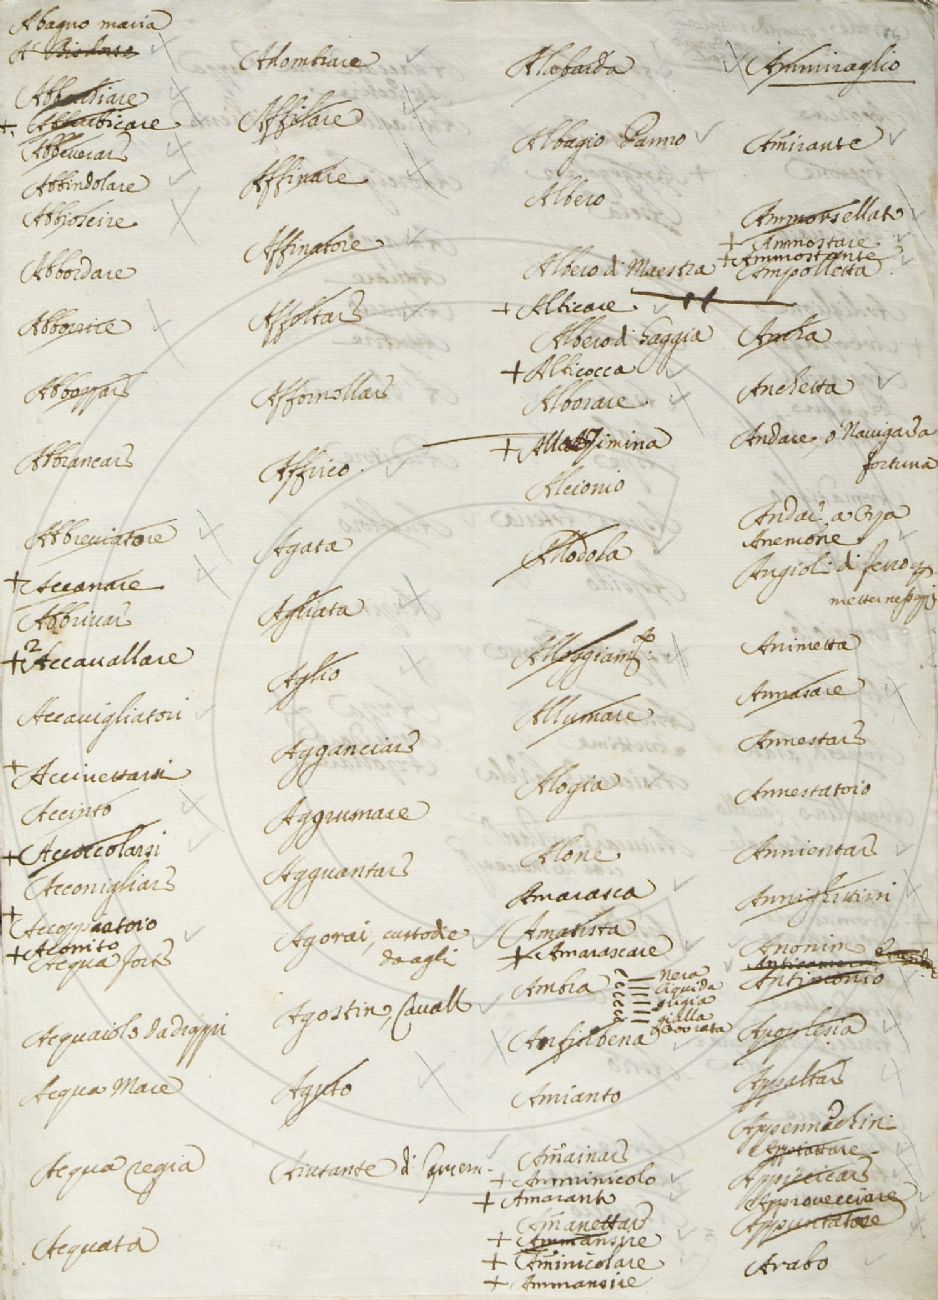 Abagno maria
A Biodoro
Abbachiare
+ Abbarbicare
Abbeverare
Abbindolare
Abbioscire
Abbordare
Abborrire
Abbozzare
Abbrancare
Abbreviatore
+ Accanare
Abbrivare
+ 2 Accavallare
Accavigliatori
+ Accivettarsi
Accinto
+ Accoccolarsi
Acconigliare
+
Accoppiatoio
+ Aconito
Acqua forte
Acquaiolo da
Acqua Mare
Acqua regia
Acquata
Adombrare
Affilare
Affinare
Affinatore
Affoltare
Affornellare
Affrico
Agata
Agliata
Aglio
Agganciare
Aggrumare
Agguantare
Agorai, custodie
da agli
Agostin, Cavall
Aguto
Aiutante di
Alabarda
Albagio Panno
Albero
Albero di Maestra
+ Albicare
Albero di Gaggia
+ Albicocca
Alborare
+ Allazzimina
Alcionio
Allodola
Alloggiamto:
Allumare
Alogia
Alone
Amarasca
Amatista
+ Amarascare
Ambra
nera
liquida
grigia
gialla
odorata
Anfisibena
Amianto
Amainare
+ Amminicolo
+ Amaranto
Amanettare
+ Ammansire
+ Aminicolare
+ Ammansire
Ammiraglio
Amirante
Ammorsellato
+ Ammostare
+ Ammostante
Ampolletta
Ancha
Anchetta
Andare, o Navigar a
fortuna
Andar a Orza
Anemone
Angioli di ferro p
metter ne pezzi
Animetta
Annasare
Annestare
Annestatoio
Annientare
Annighittiri
Anonim
Anticamera
Antimonio
Apoplesia
Appaltare
Appennachin
Appiattare
Appiccicare
Approvecciare
Appuntatore
Arabo